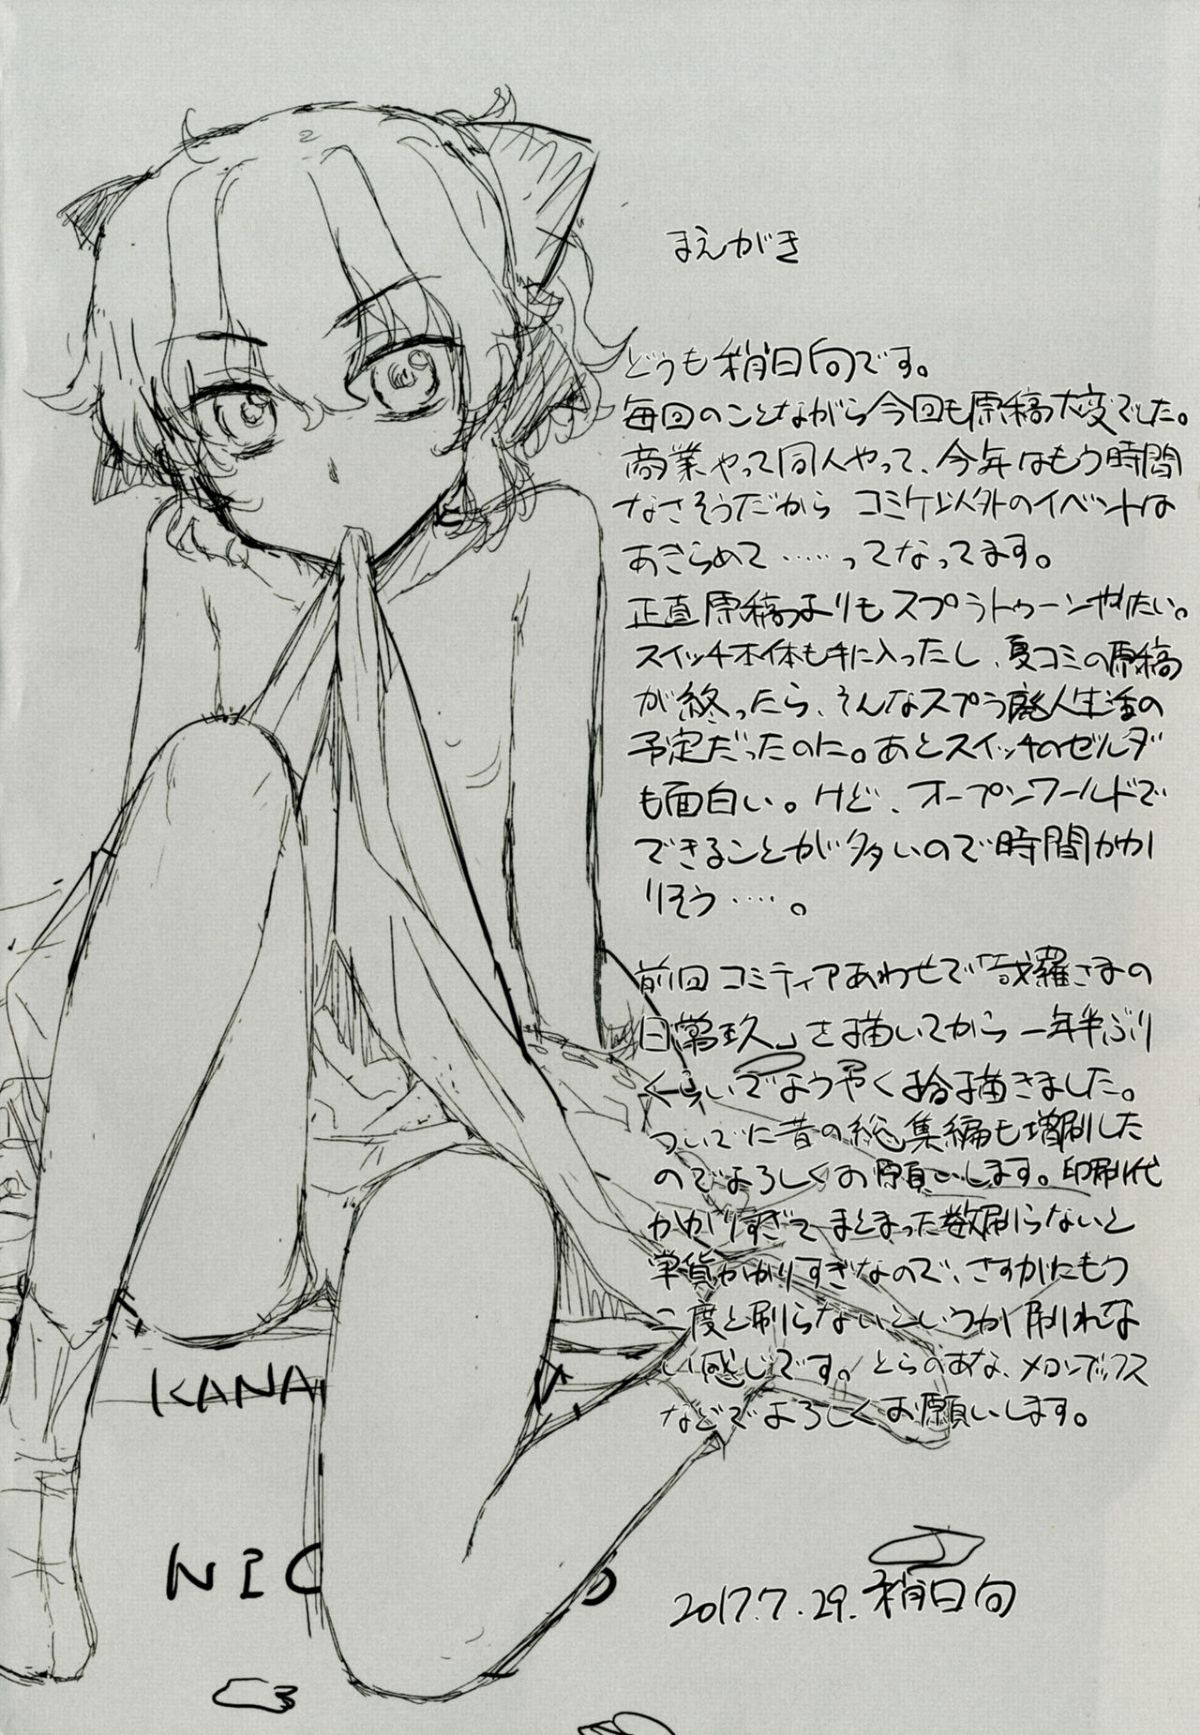 まえがき
どうも梢日向です。
毎回のことながら今回も原稿大変でした。
商業やって同人やって、今年はもう時間
なさそうだから コミケ以外のイベントは
あきらめて……ってなってます。
正直原稿よりもスプラトゥーンやりたい。
スイッチ本体も手に入ったし、夏コミの原稿
が終ったら、そんなスプラ廃人生活の
予定だったのに。あとスイッチのゼルダ
も面白い。けど、オープンワールドで
できることが多いので時間かか
りそう……。
前回コミティアあわせで「哉羅さまの
日常玖」を描いてから一年半ぶり
くらいでようやく拾描きました。
ついでに昔の総集編も増刷した
のでよろしくお願いします。印刷代
かかりすぎてまとまった数刷らないと
単価かかりすぎなので、さすがにもう
二度と刷らないというか刷れな
い感じです。とらのあな、メロンブックス
などでよろしくお願いします。
KANA
NIC
2017.7.29. 梢日向